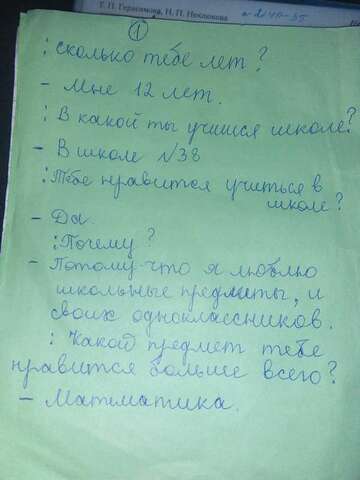 Т. П. Герасимова, Н. П. Неклюкова
①
: сколько тебе лет?
- Мне 12 лет.
: В какой ты учишся школе?
- В школе №38
: Тебе нравится учиться в
школе?
- Да.
: Почему?
- Потому-что я люблю
школьные предметы, и
своих одноклассников.
: Какой предмет тебе
нравится больше всего?
- Математика.